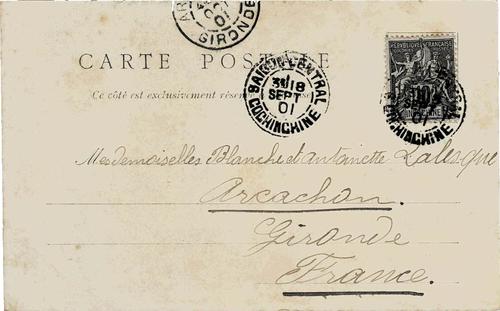 GIRONDE
CARTE POSTALE
Ce côté est exclusivement réservé
SAIGON CENTRAL
18
SEPT
01
COCHINCHINE
RÉPUBLIQUE FRANÇAISE
10
COCHINCHINE
Mesdemoiselles Blanche et Antoinette Lalesque
Arcachon.
Gironde
France.